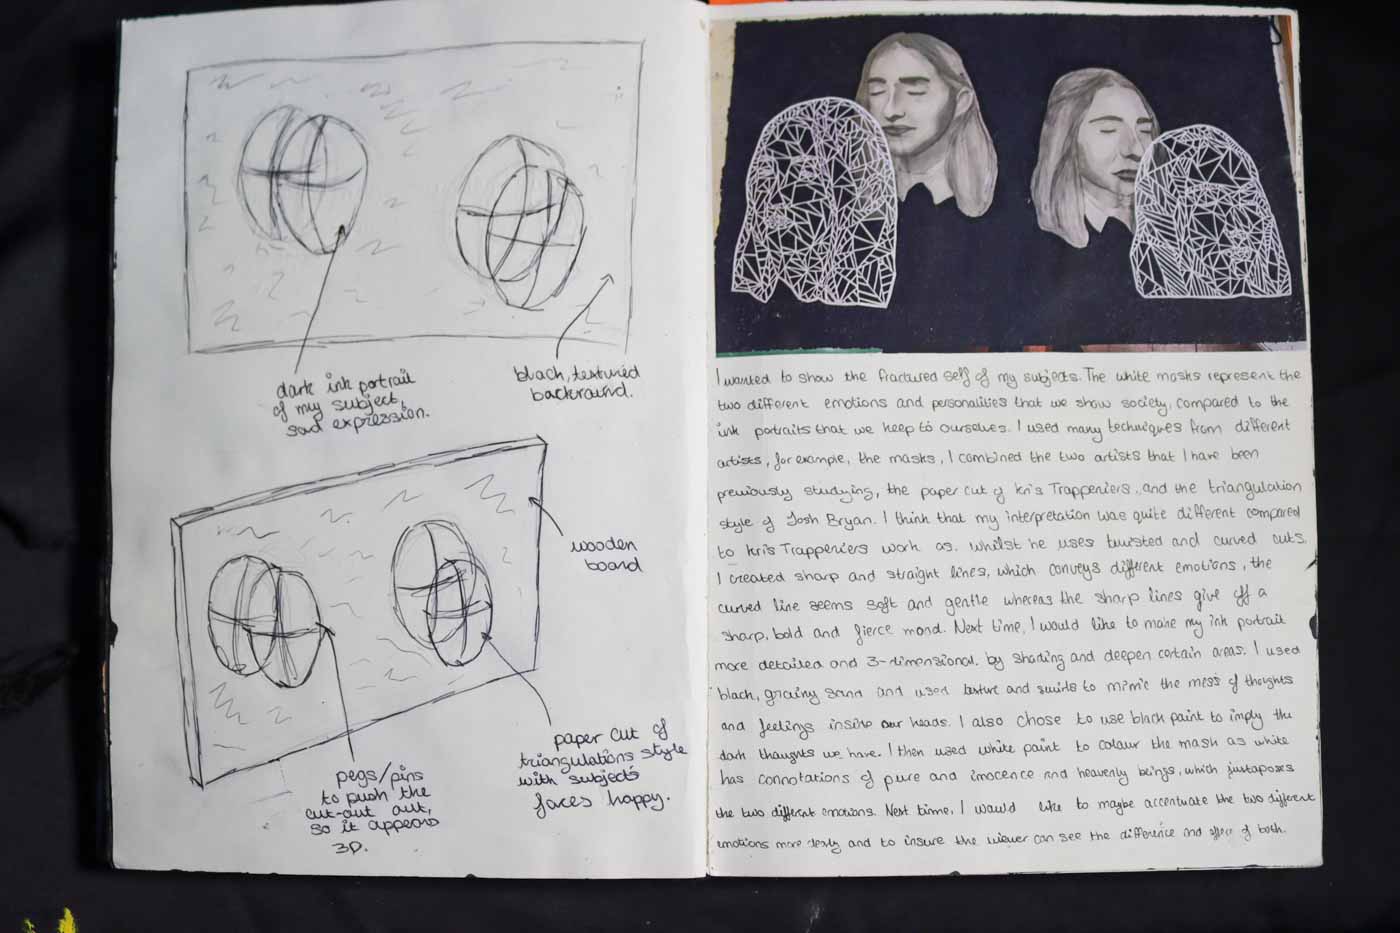 dark ink portrait
of my subject,
sad expression.
black, textured
backround.
wooden
board
pegs/pins
to push the
cut-out out,
so it appears
3D.
paper cut of
triangulations style
with subjects
faces happy.
I wanted to show the fractured self of my subjects. The white masks represent the
two different emotions and personalities that we show society, compared to the
ink portraits that we keep to ourselves. I used many techniques from different
artists, for example, the masks, I combined the two artists that I have been
previously studying, the paper cut of Kris Trappeniers, and the triangulation
style of Josh Bryan. I think that my interpretation was quite different compared
to Kris Trappeniers work as, whilst he uses twisted and curved cuts,
I created sharp and straight lines, which conveys different emotions, the
curved line seems soft and gentle whereas the sharp lines give off a
sharp, bold and fierce mood. Next time, I would like to make my ink portrait
more detailed and 3-dimensional, by shading and deepen certain areas. I used
black, grainy sand and used texture and swirls to mimic the mess of thoughts
and feelings inside our heads. I also chose to use black paint to imply the
dark thoughts we have. I then used white paint to colour the mask as white
has connotations of pure and inocence and heavenly beings, which juxtaposes
the two different emotions. Next time, I would like to maybe accentuate the two different
emotions more and to insure the viewer can see the difference and effect of both.